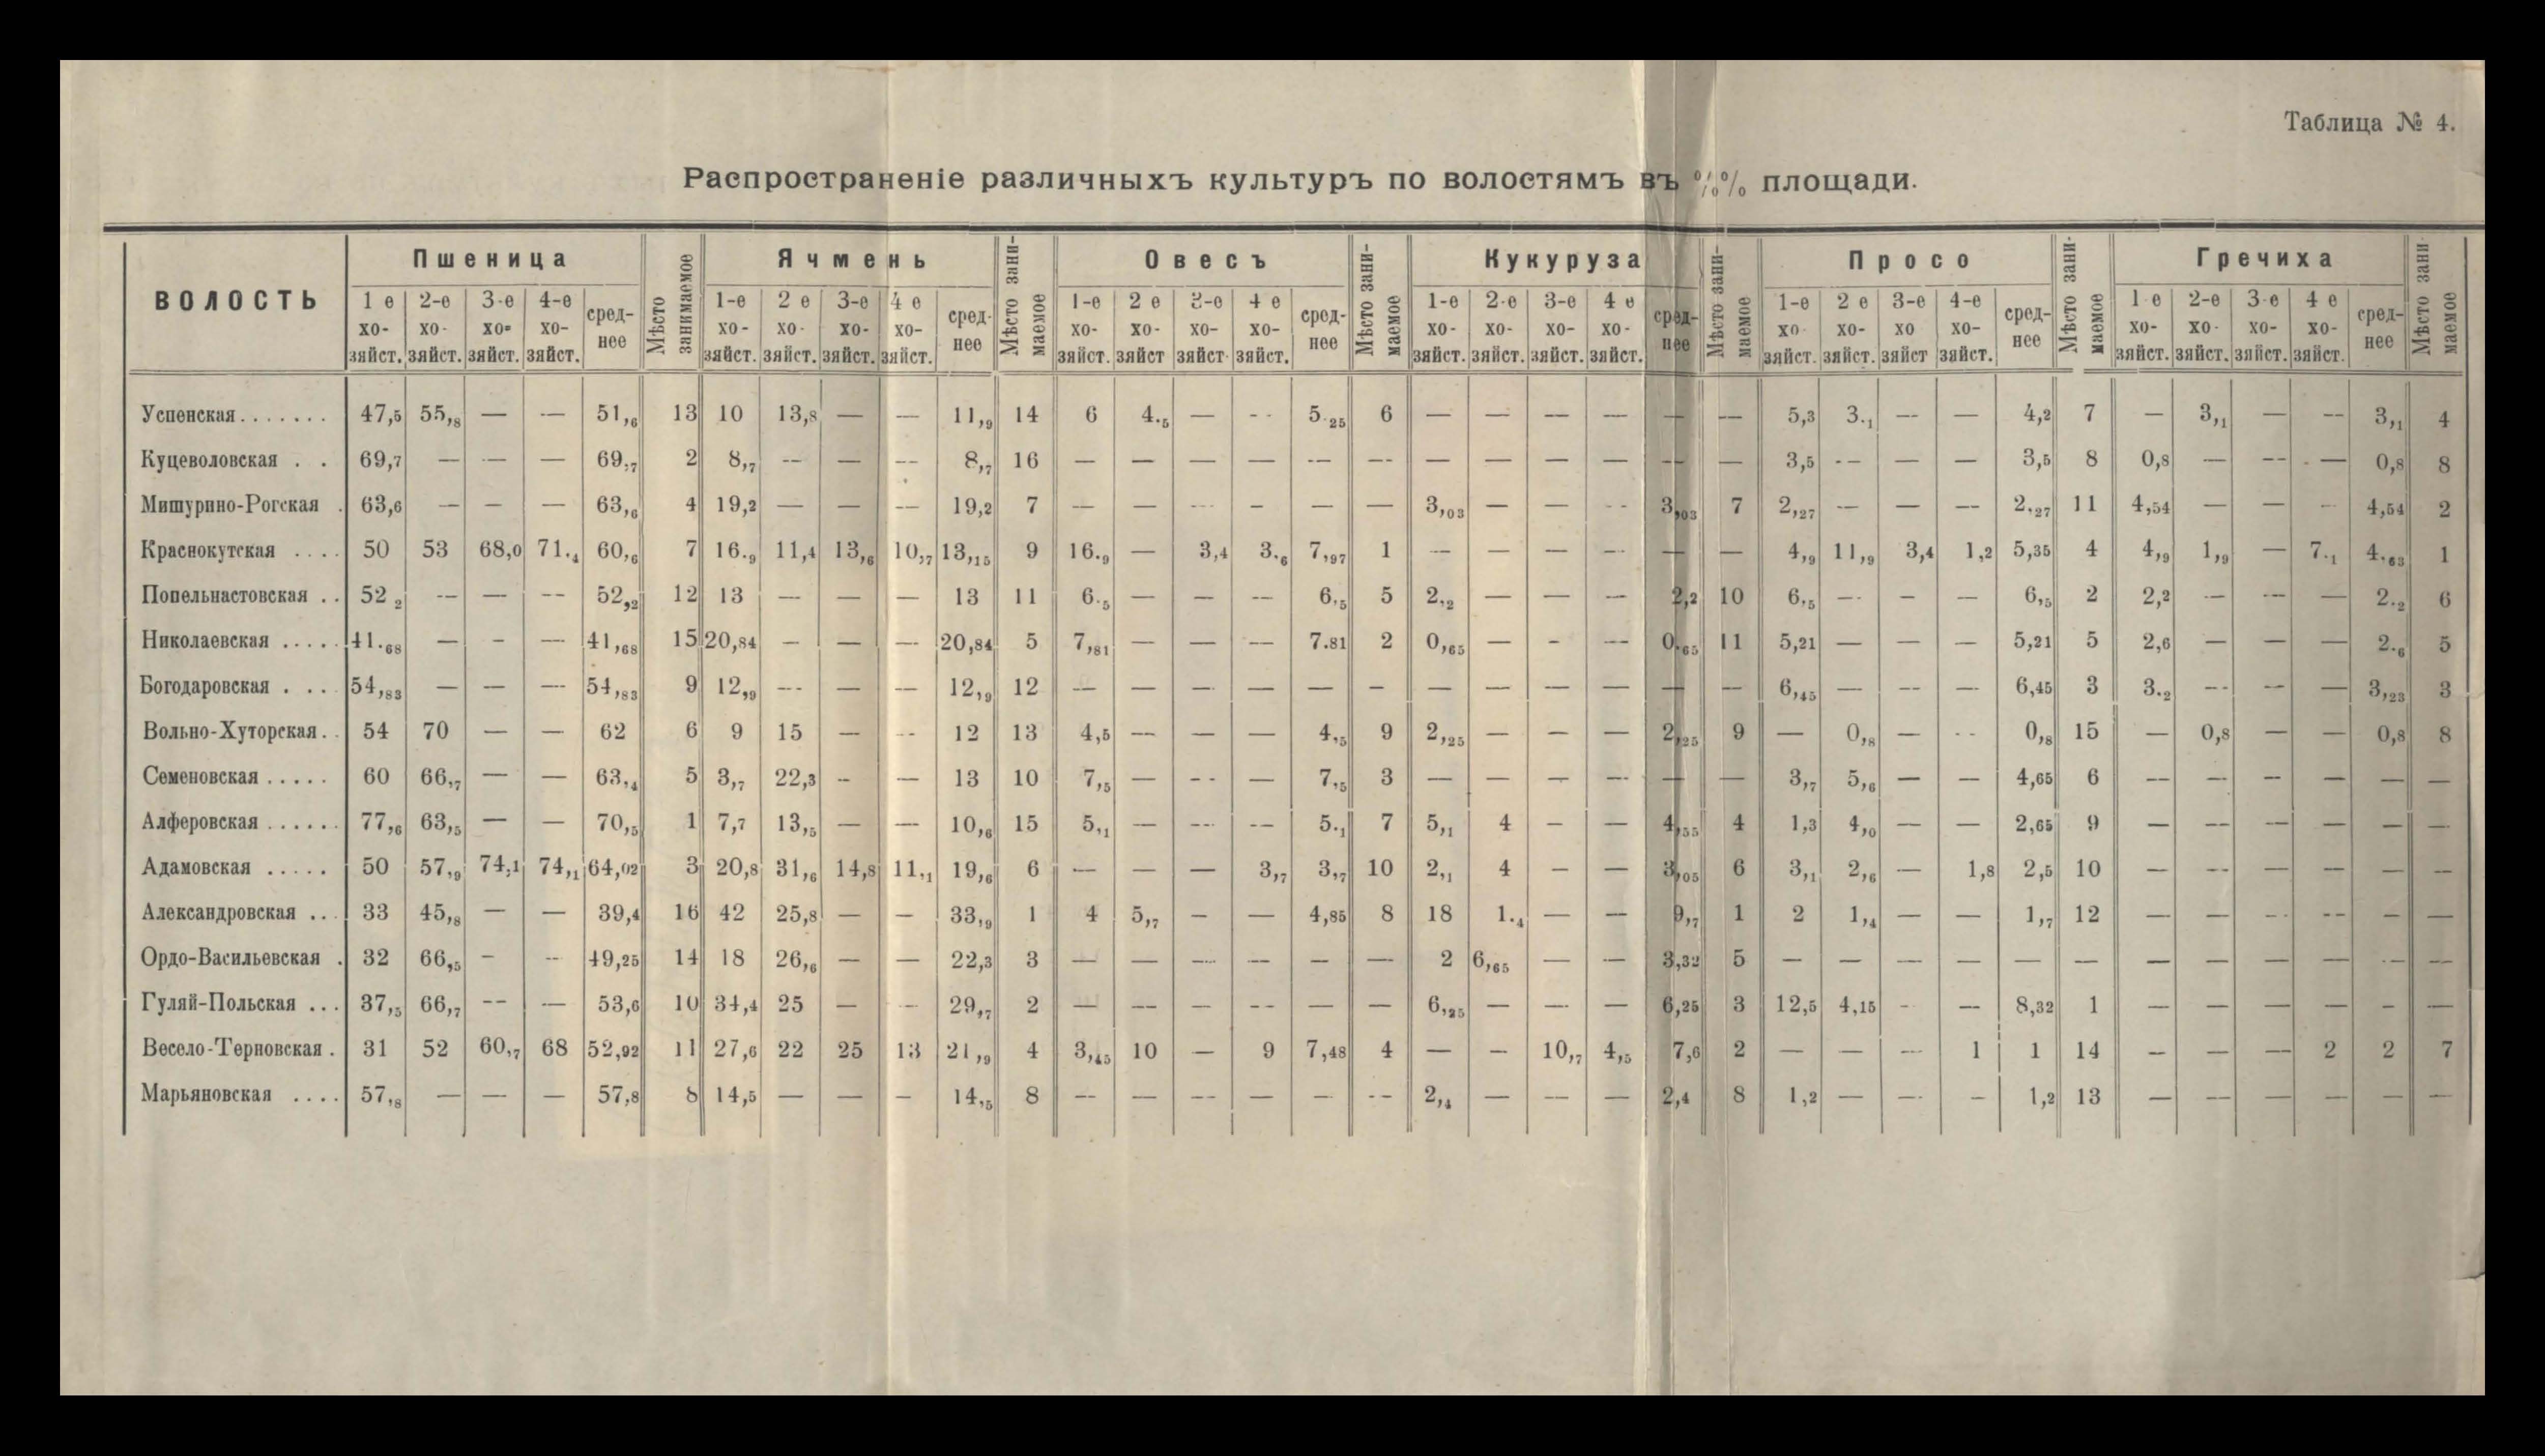 Таблица № 4.
Распространеніе различныхъ культуръ по волостямъ въ %% площади.
ВОЛОСТЬ Пшеница Мѣсто занимаемое Ячмень Мѣсто зани-маемое Овесъ Мѣсто зани-маемое Кукуруза Мѣсто зани-маемое Просо Мѣсто зани-маемое Гречиха Мѣсто зани-маемое
1 е 2-е 3-е 4-е 1-е 2 е 3-е 4 е 1-е 2 е 3-е 4 е 1-е 2-е 3-е 4 е 1-е 2 е 3-е 4-е 1-е 2-е 3-е 4 е
хо- хо- хо- хо- сред- хо- хо- хо- хо- сред- хо- хо- хо- хо- сред- хо- хо- хо- хо- сред- хо- хо- хо хо- сред- хо- хо- хо- хо- сред-
зяйст. зяйст. зяйст. зяйст. нее зяйст. зяйст. зяйст. зяйст. нее зяйст. зяйст зяйст. зяйст. нее зяйст. зяйст. зяйст. зяйст. нее зяйст. зяйст. зяйст зяйст. нее зяйст. зяйст. зяйст. зяйст. нее
Успенская....... 47,5 55,8 — — 51,6 13 10 13,8 — — 11,9 14 6 4.5 — — 5.25 6 — — — — — — 5,3 3.1 — — 4,2 7 — 3,1 — — 3,1 4
Куцеволовская . . 69,7 — — — 69,7 2 8,7 — — — 8,7 16 — — — — — — — — — — — — 3,5 — — — 3,5 8 0,8 — — — 0,8 8
Мишурино-Рогская . 63,6 — — — 63,6 4 19,2 — — — 19,2 7 — — — — — — 3,03 — — — 3,03 7 2,27 — — — 2,27 11 4,54 — — — 4,54 2
Краснокутская .... 50 53 68,0 71.4 60,6 7 16.9 11,4 13,6 10,7 13,15 9 16.9 — 3,4 3.6 7,97 1 — — — — — — 4,9 11,9 3,4 1,2 5,35 4 4,9 1,9 — 7.1 4.63 1
Попельнастовская .. 52 2 — — — 52,2 12 13 — — — 13 11 6.5 — — — 6,5 5 2.2 — — — 2,2 10 6,5 — — — 6,5 2 2,2 — — — 2.2 6
Николаевская ..... 41.68 — — — 41,68 15 20,84 — — — 20,84 5 7,81 — — — 7.81 2 0,65 — — — 0,65 11 5,21 — — — 5,21 5 2,6 — — — 2.6 5
Богодаровская . ... 54,83 — — — 54,83 9 12,9 — — — 12,9 12 — — — — — — — — — — — — 6,45 — — — 6,45 3 3.2 — — — 3,23 3
Вольно-Хуторская.. 54 70 — — 62 6 9 15 — — 12 13 4,5 — — — 4,5 9 2,25 — — — 2,25 9 — 0,8 — — 0,8 15 — 0,8 — — 0,8 8
Семеновская ..... 60 66,7 — — 63,4 5 3,7 22,3 — — 13 10 7,5 — — — 7,5 3 — — — — — — 3,7 5,6 — — 4,65 6 — — — — — —
Алферовская ...... 77,6 63,5 — — 70,5 1 7,7 13,5 — — 10,6 15 5,1 — — — 5.1 7 5,1 4 — — 4,55 4 1,3 4,0 — — 2,65 9 — — — — — —
Адамовская ..... 50 57,9 74,1 74,1 64,02 3 20,8 31,6 14,8 11,1 19,6 6 — — — 3,7 3,7 10 2,1 4 — — 3,05 6 3,1 2,6 — 1,8 2,5 10 — — — — — —
Александровская ... 33 45,8 — — 39,4 16 42 25,8 — — 33,9 1 4 5,7 — — 4,85 8 18 1.4 — — 9,7 1 2 1,4 — — 1,7 12 — — — — — —
Ордо-Васильевская . 32 66,5 — — 49,25 14 18 26,6 — — 22,3 3 — — — — — — 2 6,65 — — 3,32 5 — — — — — — — — — — — —
Гуляй-Польская ... 37,5 66,7 — — 53,6 10 34,4 25 — — 29,7 2 — — — — — — 6,25 — — — 6,25 3 12,5 4,15 — — 8,32 1 — — — — — —
Весело-Терновская . 31 52 60,7 68 52,92 11 27,6 22 25 13 21,9 4 3,45 10 — 9 7,48 4 — — 10,7 4,5 7,6 2 — — — 1 1 14 — — — 2 2 7
Марьяновская .... 57,8 — — — 57,8 8 14,5 — — — 14,5 8 — — — — — — 2,4 — — — 2,4 8 1,2 — — — 1,2 13 — — — — — —